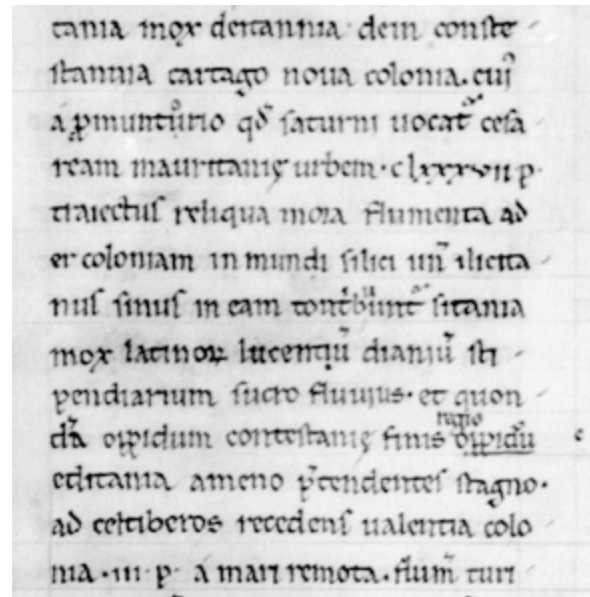 tania mox deitannia dein conste
stannia cartago noua colonia. cuiꝰ
a ꝓmunturio qđ saturni uocat̃ cesa
ream mauritanię urbem. clxxxvii p̶
traiectus reliqua mora flumenta ad
er coloniam inmundi silici un̄ ilicita
nus sinus in eam cont̃bũnt̃ sitania
mox latinoꝝ lucentiũ dianiũ sti
pendiarium sucro fluuius. et quon
dã oppidum contestanię finis oppidũ
regio
editania ameno p̃tendentes stagno.
ad celtiberos recedens ualentia colo
nia. iii. p̶. a mari remota. flum̃ turi